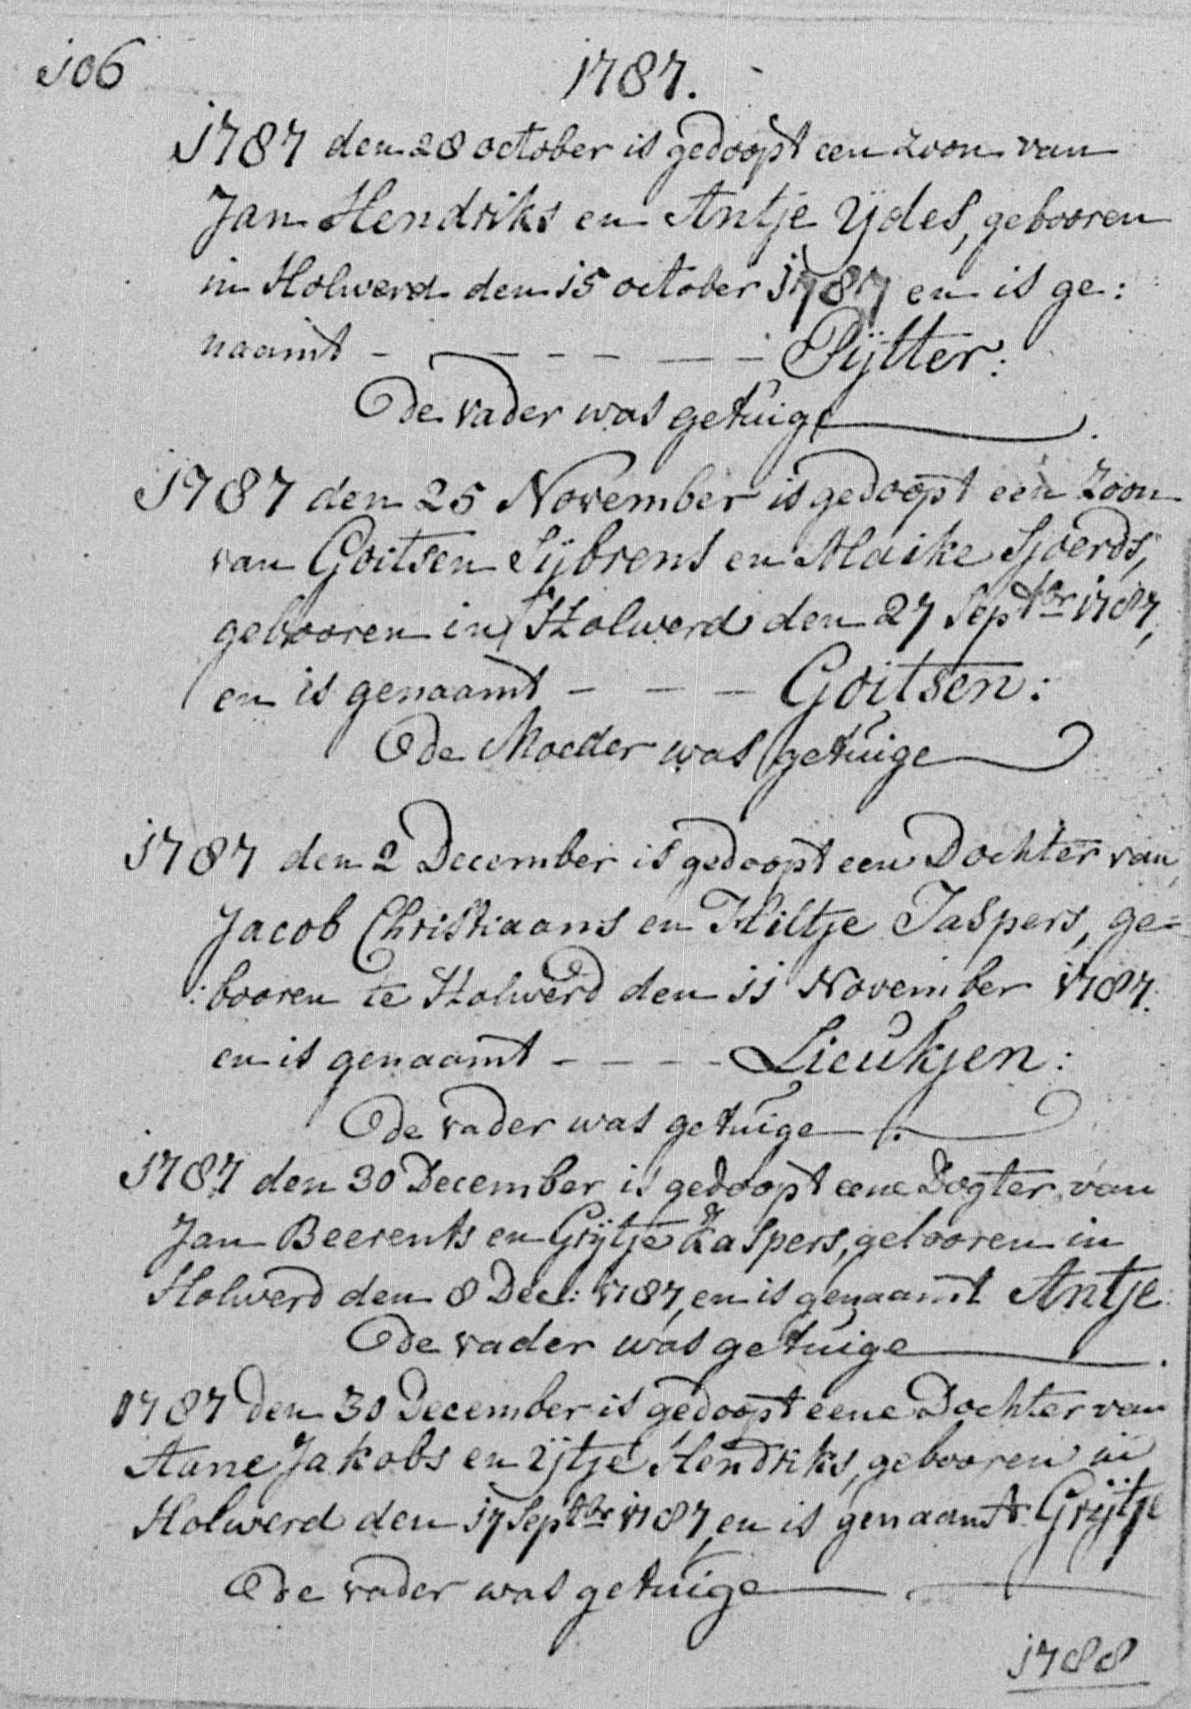 106
1787.
1787 den 28 october is gedoopt een zoon van
Jan Hendriks en Antje Ydes, gebooren
in Holwerd den 15 october 1787 en is ge:
naamt - - - - - - - Pÿtter:
De vader was getuige.
1787 den 25 November is gedoopt een Zoon
van Goitsen Sÿbrens en Maike Sjoerds,
gebooren in Holwerd den 27 Septbr 1787,
en is genaamt - - - Goitsen:
De Moeder was getuige
1787 den 2 December is gedoopt een Dochter van
Jacob Christiaans en Hiltje Jaspers, ge=
:booren te Holwerd den 11 November 1787.
en is genaamt - - - - Lieukjen:
De vader was getuige.
1787 den 30 December is gedoopt eene Dogter van
Jan Beerents en Grÿtje Kaspers, gebooren in
Holwerd den 8 Dec: 1787, en is genaamt Antje.
De vader was getuige.
1787 den 30 December is gedoopt eene Dochter van
Aane Jakobs en Ytje Hendriks, gebooren in
Holwerd den 17 Septbr 1787, en is genaamt Grÿtje
De vader was getuige
1788